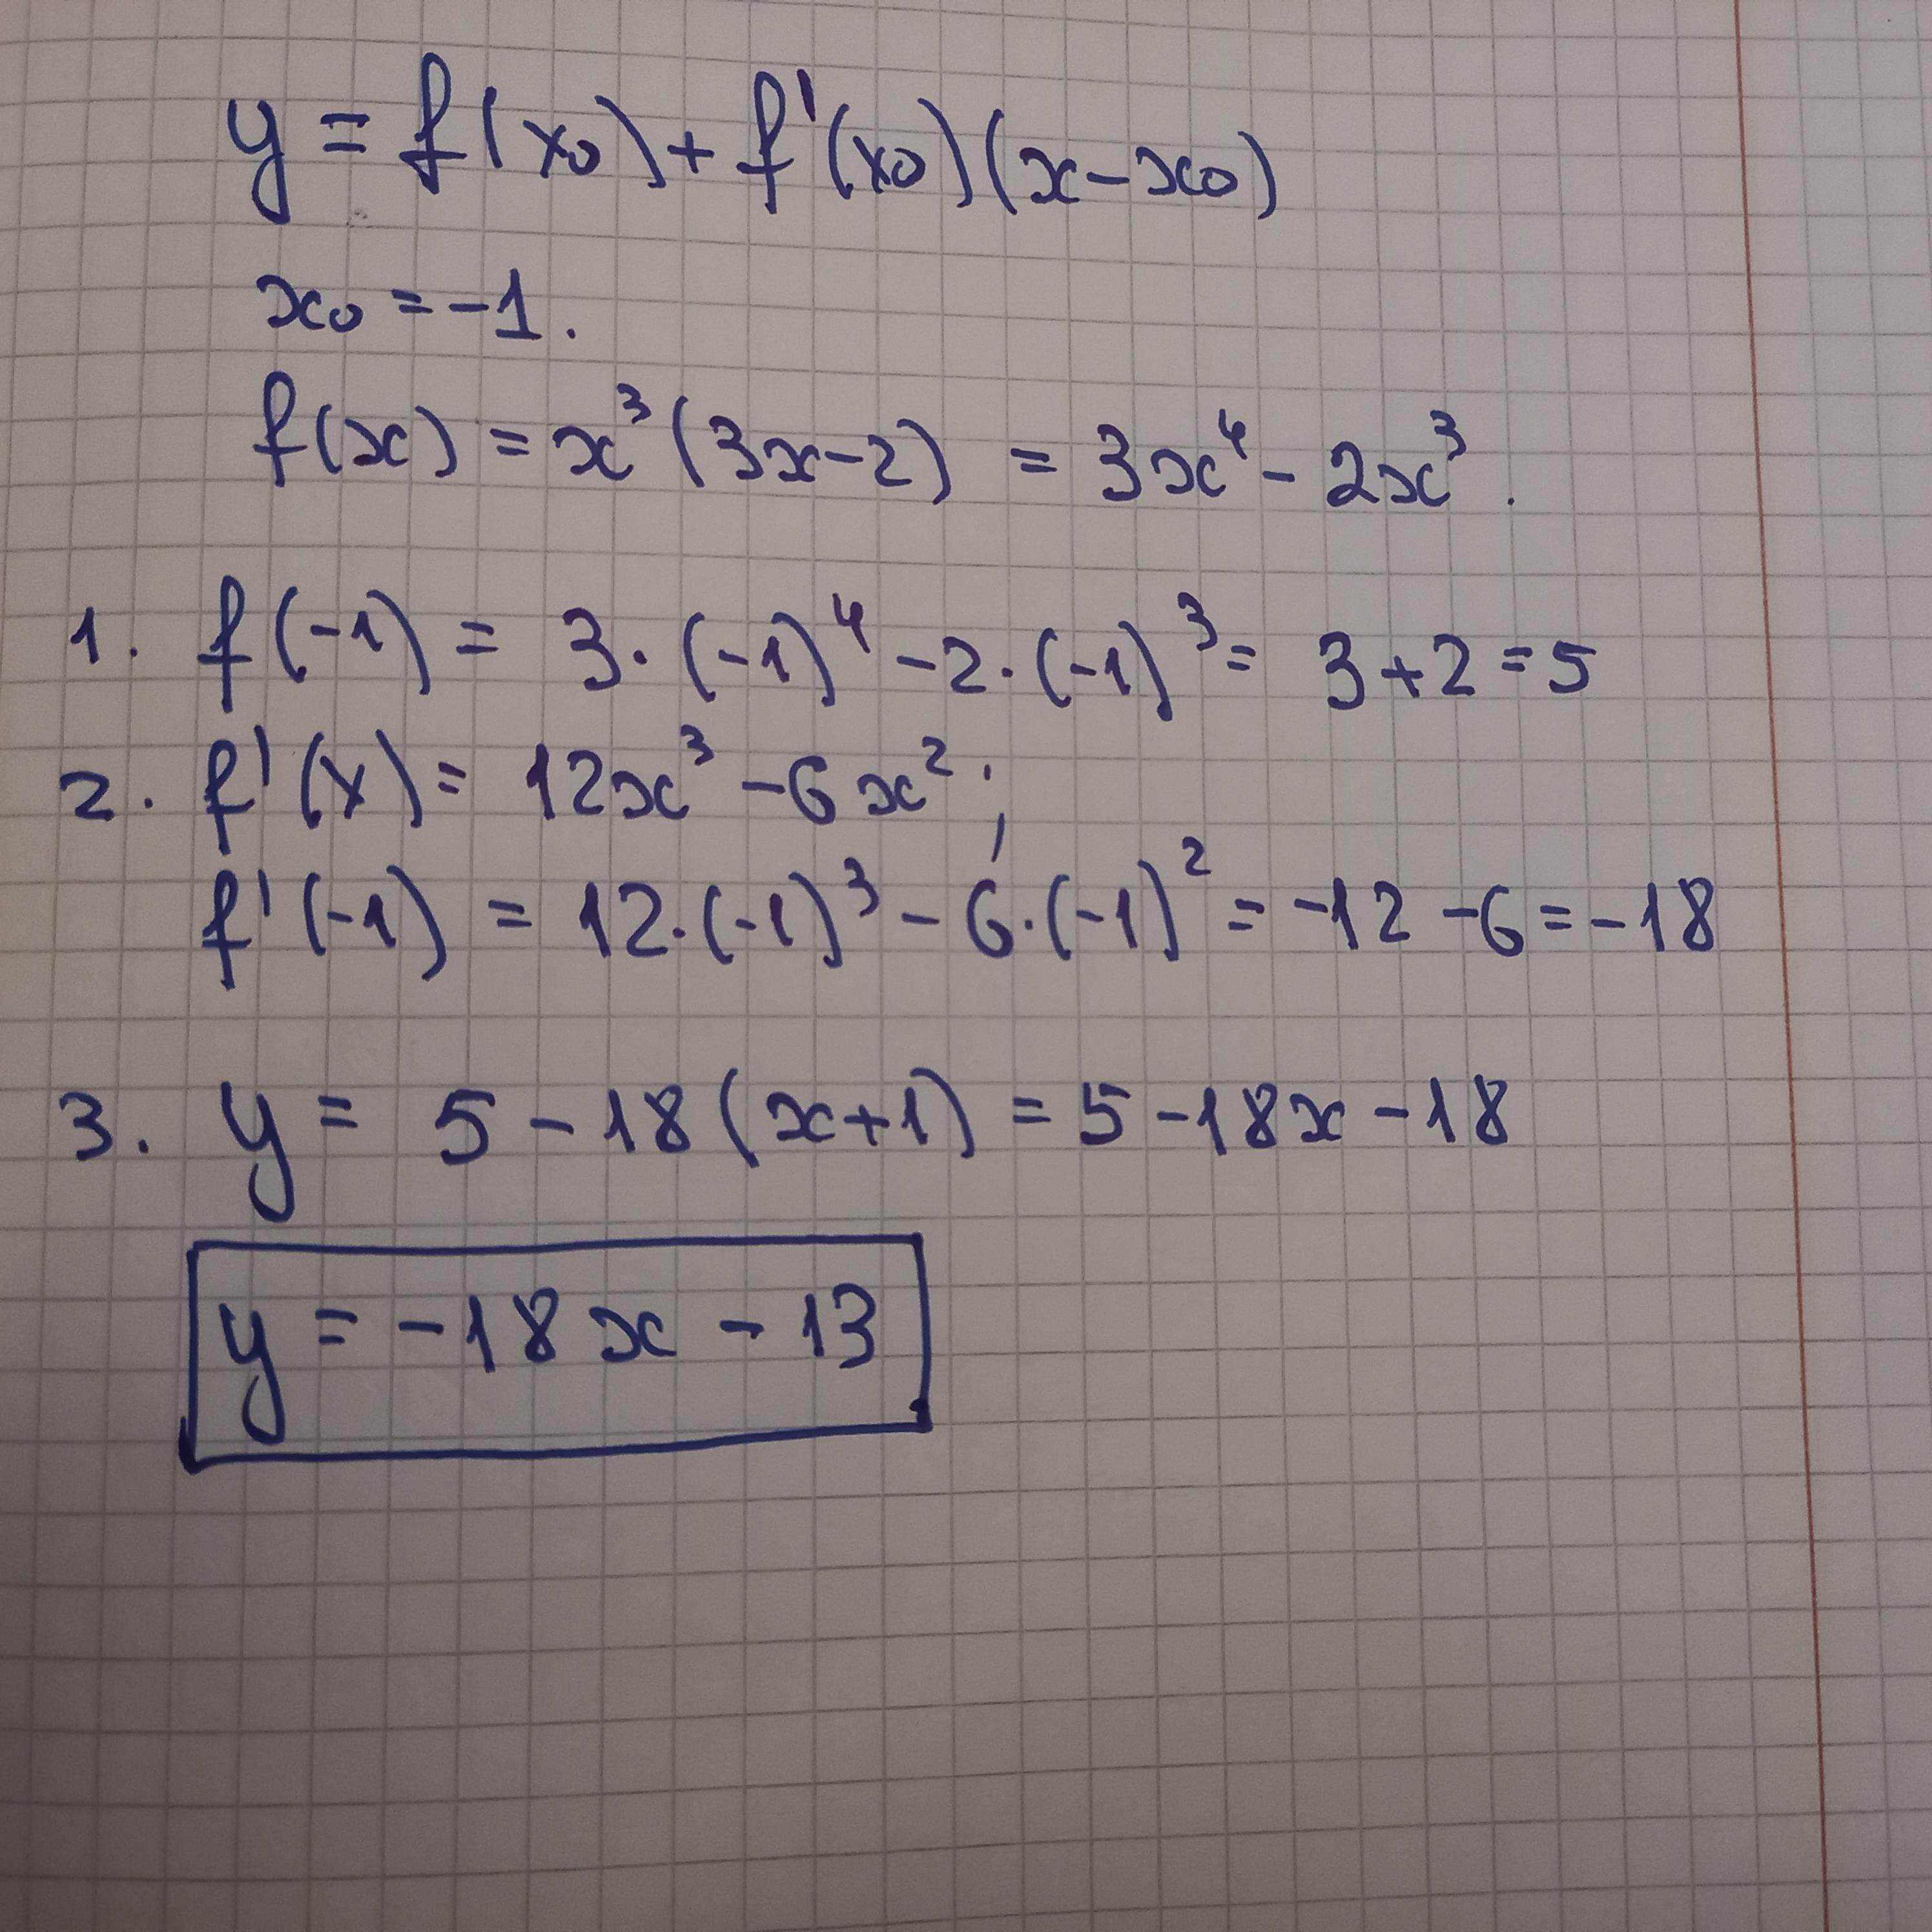 y = f(x₀) + f'(x₀)(x - x₀)
x₀ = -1.
f(x) = x³(3x-2) = 3x⁴ - 2x³.
1. f(-1) = 3·(-1)⁴ - 2·(-1)³ = 3+2=5
2. f'(x) = 12x³ - 6x²;
f'(-1) = 12·(-1)³ - 6·(-1)² = -12 - 6 = -18
3. y = 5 - 18(x+1) = 5 - 18x - 18
y = -18x - 13